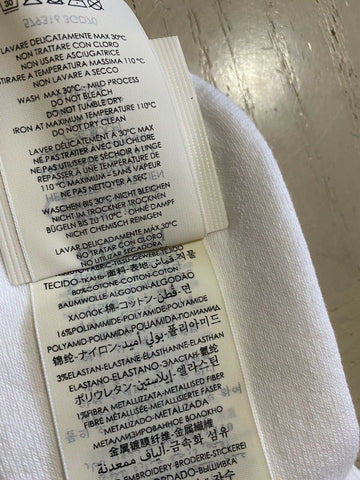 30
279316 3G070
LAVARE DELICATAMENTE MAX 30°C
NON TRATTARE CON CLORO
NON USARE ASCIUGATRICE
STIRARE A TEMPERATURA MASSIMA 110°C
NON LAVARE A SECCO
WASH MAX 30°C - MILD PROCESS
DO NOT BLEACH
DO NOT TUMBLE DRY
IRON AT MAXIMUM TEMPERATURE 110°C
DO NOT DRY CLEAN
LAVER DÉLICATEMENT À 30°C MAX
NE PAS TRAITER AVEC DU CHLORE
NE PAS UTILISER DE SÉCHOIR À LINGE
REPASSER À UNE TEMPÉRATURE DE
110 °C MAXIMUM - SANS VAPEUR
NE PAS NETTOYER À SEC
WASCHEN BIS 30°C - NICHT BLEICHEN
NICHT IM TROCKNER TROCKNEN
BÜGELN BIS ZU 110°C - OHNE DAMPF
NICHT CHEMISCH REINIGEN
LAVAR DELICADAMENTE MAX 30°C
NO TRATAR CON CLORO
NO UTILIZAR SECADORA
TECIDO-ТКАНЬ-面料-表地-قماش-직물
80%COTONE-COTTON-COTON
BAUMWOLLE-ALGODÓN-ALGODÃO
ХЛОПОК-棉-コットン-قطن-면
16%POLIAMMIDE-POLYAMIDE-POLYAMIDE
POLYAMID-POLIAMIDA-POLIAMIDA-ПОЛИАМИД
锦纶-ナイロン-بولي أميد-폴리아미드
3%ELASTAN-ELASTANE-ELASTHANNE-ELASTHAN
ELASTANO-ELASTANO-ЭЛАСТАН-氨纶
ポリウレタン-إيلاستين-엘라스틴
1%FIBRA METALLIZZATA-METALLISED FIBER
METALIZADO-METALIZADA
МЕТАЛЛИЗИРОВАННОЕ ВОЛОКНО
金属镀膜纤维-金属繊維
ألياف معدنية-금속화 섬유
EMBROIDERY-BRODERIE-STICKEREI